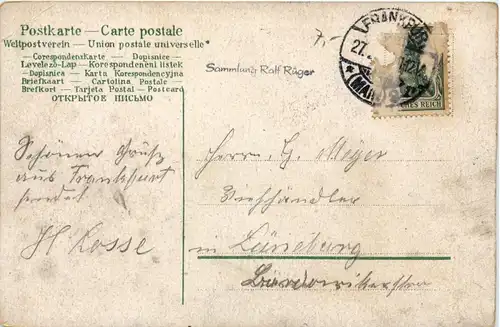 Postkarte — Carte postale
Weltpostverein — Union postale universelle*
—Corespondenskarte — Dopisnice —
Levelező-Lap — Korespondenční lístek
—Dopisnica — Karta Korespondencyjna
Briefkaart — Cartolina Postale —
Brefkort — Tarjeta Postal — Postcard
ОТКРЫТОЕ ПИСЬМО
7,-
Sammlung Ralf Rüger
FRANKFURT
27.
(MAIN)
ES REICH
Schönen Gruß
aus Frankfurt
sendet
H Losse
Herrn G. Meyer
Viehhändler
in Lüneburg
Bardowikerstr